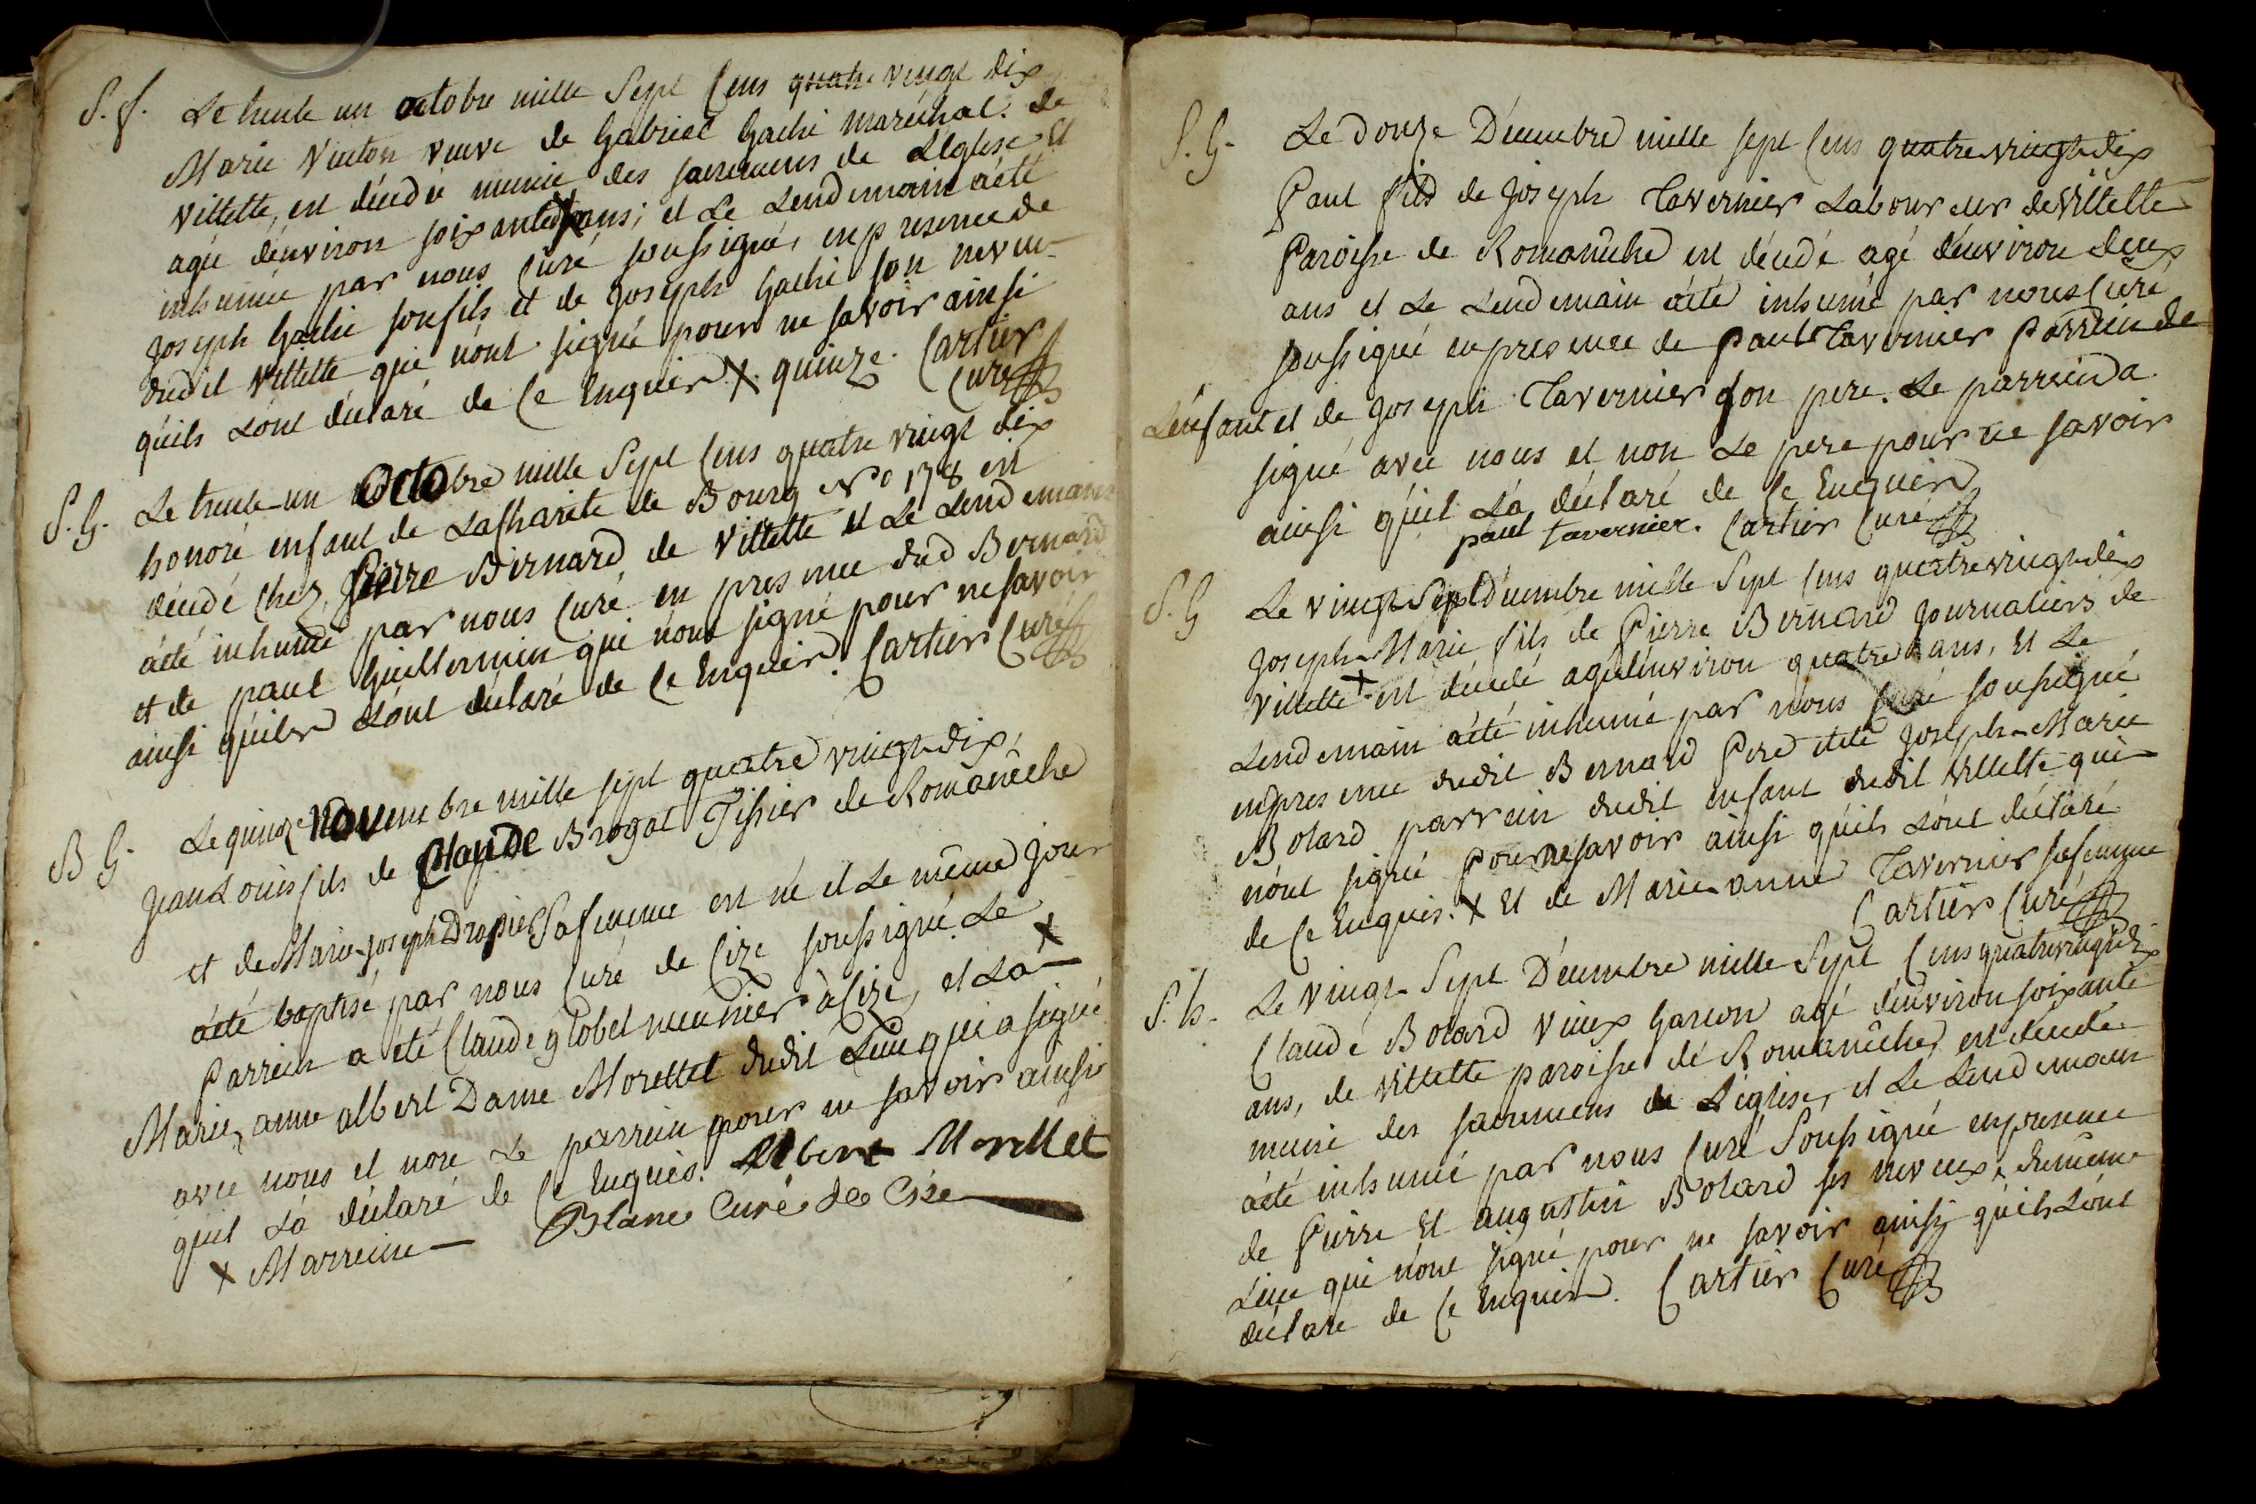 S. f. Le trente un octobre mille Sept Cens quatre vingt dix
Marie Vieton veuve de Gabriel Gache maréchal de
Villette, est décédée munie des sacremens de L'Eglise et
agée d'environ soixante X ans; et Le Lendemain a été
inhumée par nous Curé soussigné, en presence de
Joseph Gache son fils et de Joseph Gache son neveu
dudit Villette qui n'ont signé pour ne savoir ainsi
qu'ils L'ont déclaré de Ce Enquis X. quinze. Cartier
Curé
S. G. Le trente un Octobre mille Sept Cens quatre vingt dix
honoré enfant de La Charité de Bourg N° 178 est
décédé Chez Pierre Bernard de Villette et Le Lendemain
a été inhumé par nous Curé en presence dud Bernard
et de paul Guillermin qui n'ont signé pour ne savoir
ainsi qu'ils L'ont déclaré de Ce Enquis. Cartier Curé
B G. Le quinze Novembre mille sept quatre vingt dix,
Jean Louis fils de Claude Brogat Tissier de Romanêche
et de Marie Joseph Drapier Sa femme est né et Le même Jour
a été baptisé par nous Curé de Cize soussigné. Le
Parrein a été Claude globel meunier à Cize, et La X
Marie, anne albert Dame Morellet dudit Lieu qui a signé
avec nous et non Le parrein pour ne savoir ainsi
qu'il L'a déclaré de Ce Enquis. Albert Morellet
X Marreine Blanc Curé de Cize
S. G. Le Douze Décembre mille sept Cens quatre vingt dix
Paul fils de Joseph Tavernier Laboureur de Villette
Paroisse de Romanêche est décédé agé d'environ deux
ans et Le Lendemain a été inhumé par nous Curé
soussigné en presence de Paul Tavernier Parrein de
L'enfant et de Joseph Tavernier son pere. Le parrein a
signé avec nous et non Le pere pour ne savoir
ainsi qu'il L'a déclaré de Ce Enquis
paul tavernier. Cartier Curé
S. G Le vingt Sept Décembre mille Sept Cens quatre vingt dix
Joseph Marie fils de Pierre Bernard Journalier de
Villette X est décédé agé d'environ quatre ans, et Le
Lendemain a été inhumé par nous Curé soussigné
en presence dudit Bernard Pere et de Joseph Marie
Bolard parrein dudit enfant dudit Villette qui
n'ont signé pour ne savoir ainsi qu'ils L'ont déclaré
de Ce Enquis. X Et de Marie anne Tavernier sa femme
Cartier Curé
S. h. Le vingt Sept Décembre mille Sept Cens quatre vingt dix
Claude Bolard vieux Garcon agé d'environ soixante
ans, de Villette paroisse de Romanêche, est décédé
muni des sacremens de L'église, et Le Lendemain
a été inhumé par nous Curé Soussigné en presence
de Pierre Et augustin Bolard ses neveux, du même
Lieu qui n'ont signé pour ne savoir ainsi qu'ils L'ont
déclaré de Ce Enquis. Cartier Curé